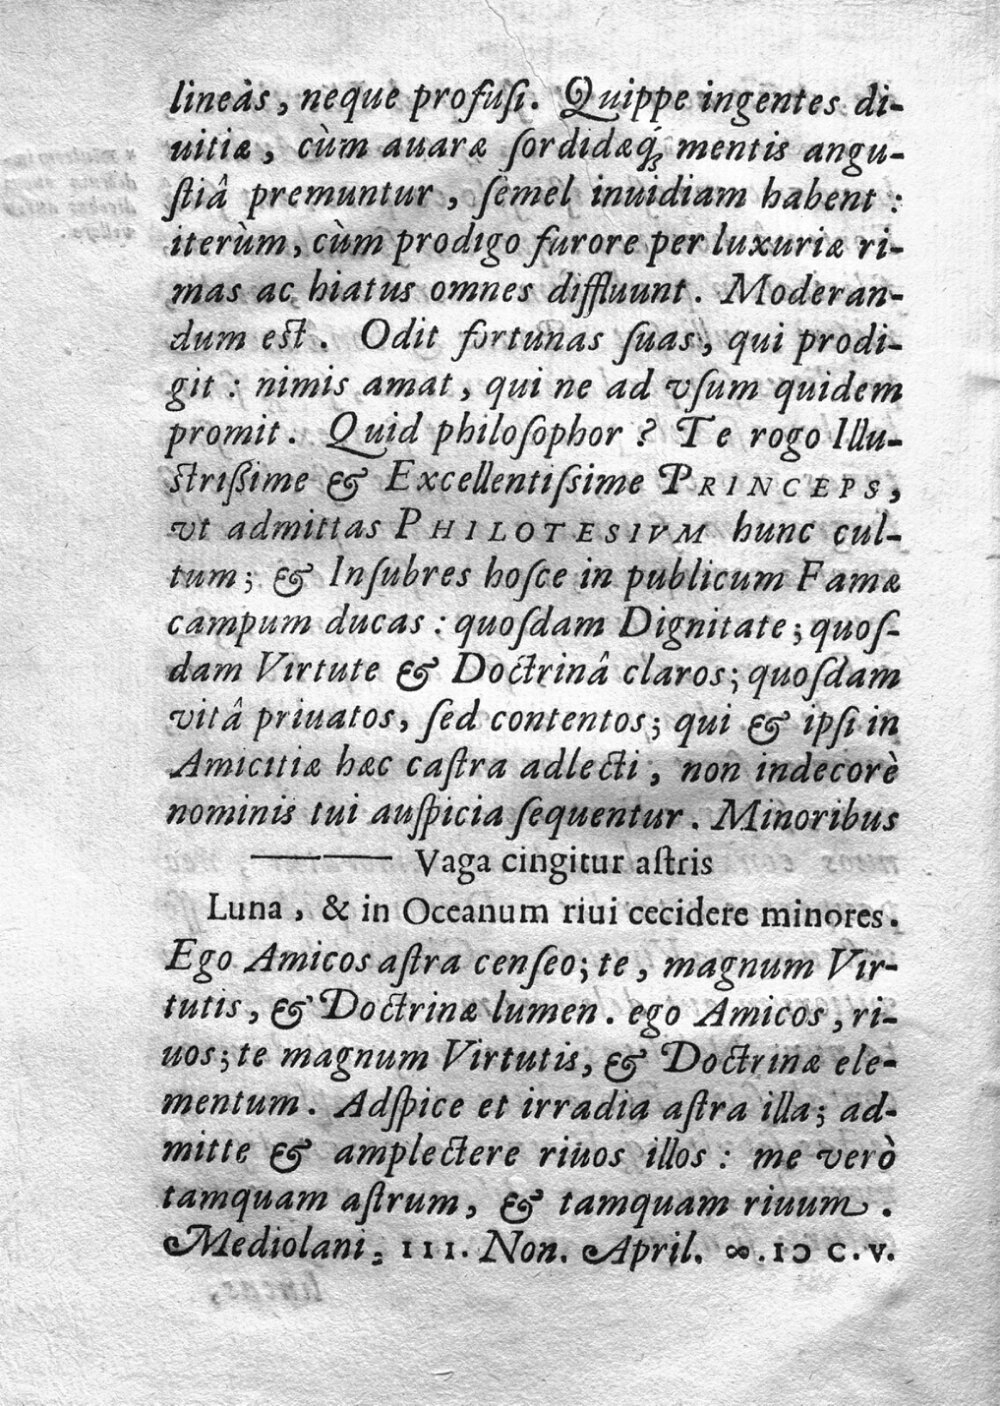 lineàs, neque profuſi. Quippe ingentes di-
uitiæ, cùm auaræ ſordidæq́; mentis angu-
ſtiâ premuntur, ſemel inuidiam habent:
iterùm, cùm prodigo furore per luxuriæ ri-
mas ac hiatus omnes diffluunt. Moderan-
dum est. Odit fortunas ſuas, qui prodi-
git: nimis amat, qui ne ad vſum quidem
promit. Quid philoſophor? Te rogo Illu-
ſtriſſime & Excellentiſsime PRINCEPS,
vt admittas PHILOTESIVM hunc cul-
tum; & Inſubres hoſce in publicum Famæ
campum ducas: quoſdam Dignitate; quoſ-
dam Virtute & Doctrinâ claros; quoſdam
vitâ priuatos, ſed contentos; qui & ipſi in
Amicitiæ hæc caſtra adlecti, non indecorè
nominis tui auſpicia ſequentur. Minoribus
—— —— Vaga cingitur aſtris
Luna, & in Oceanum riui cecidere minores.
Ego Amicos aſtra cenſeo; te, magnum Vir-
tutis, & Doctrinæ lumen. ego Amicos, ri-
uos; te magnum Virtutis, & Doctrinæ ele-
mentum. Adſpice et irradia aſtra illa; ad-
mitte & amplectere riuos illos: me verò
tamquam aſtrum, & tamquam riuum.
Mediolani. III. Non. April. ∞.IↃ C.V.